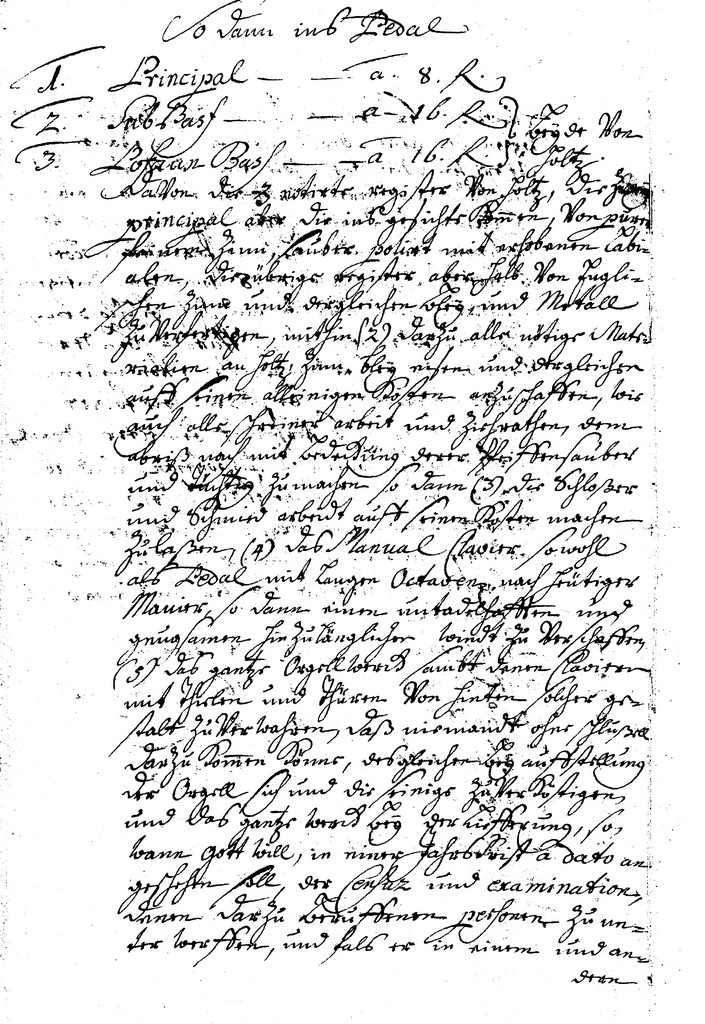 So dann ins Pedal
1. Principal — — a. 8. f.
2. SubBass — — a 16. f. } beyde Von
3. Posaun Bass — a 16. f. } Holtz.
Davon die 3 notirte register Von Holtz, die
principal aber die ins gesicht kommen, Von purem
feinen Zinn, sauber polirt mit erhobenen Labi-
alen, die übrige register aber halb Von Engli-
schen Zinn und dergleichen bley und Metall
zu Verfertigen, mithin (2) darzu alle nötige Mate-
rialien an Holtz, Zinn, bley eisen und dergleichen
auff seinen alleinigen Kosten anzuschaffen, wie
auch alle schreiner arbeit und Zierathen, dem
abriß nach mit bedeckung derer Pfeiffen sauber
und tüchtig zu machen so dann (3) die Schloßer
und Schmied arbeidt auff seine Kosten machen
zulaßen, (4) das Manual Clavier sowohl
als Pedal mit langen Octaven, nach heütiger
Manier, so dann einen untadelhafften und
genugsamen hinzulänglichen windt zu Verschaffen,
(5) das gantze Orgell werck sambt denen Clavieren
mit Thielen und Thüren Von hinten solcher ge-
stalt zu Verwahren, daß niemandt ohne schlüßell
darzu kommen könne, desgleichen bey auffstellung
der Orgell sich und die seinige zu Verköstigen,
und das gantze werck bey der liefferung, so,
wann Gott will, in einer Jahrsfrist a dato an
geschehen soll, der Censur und examination,
denen darzu beruffenen personen zu un-
ter werffen, und fals er in einem und an-
dern